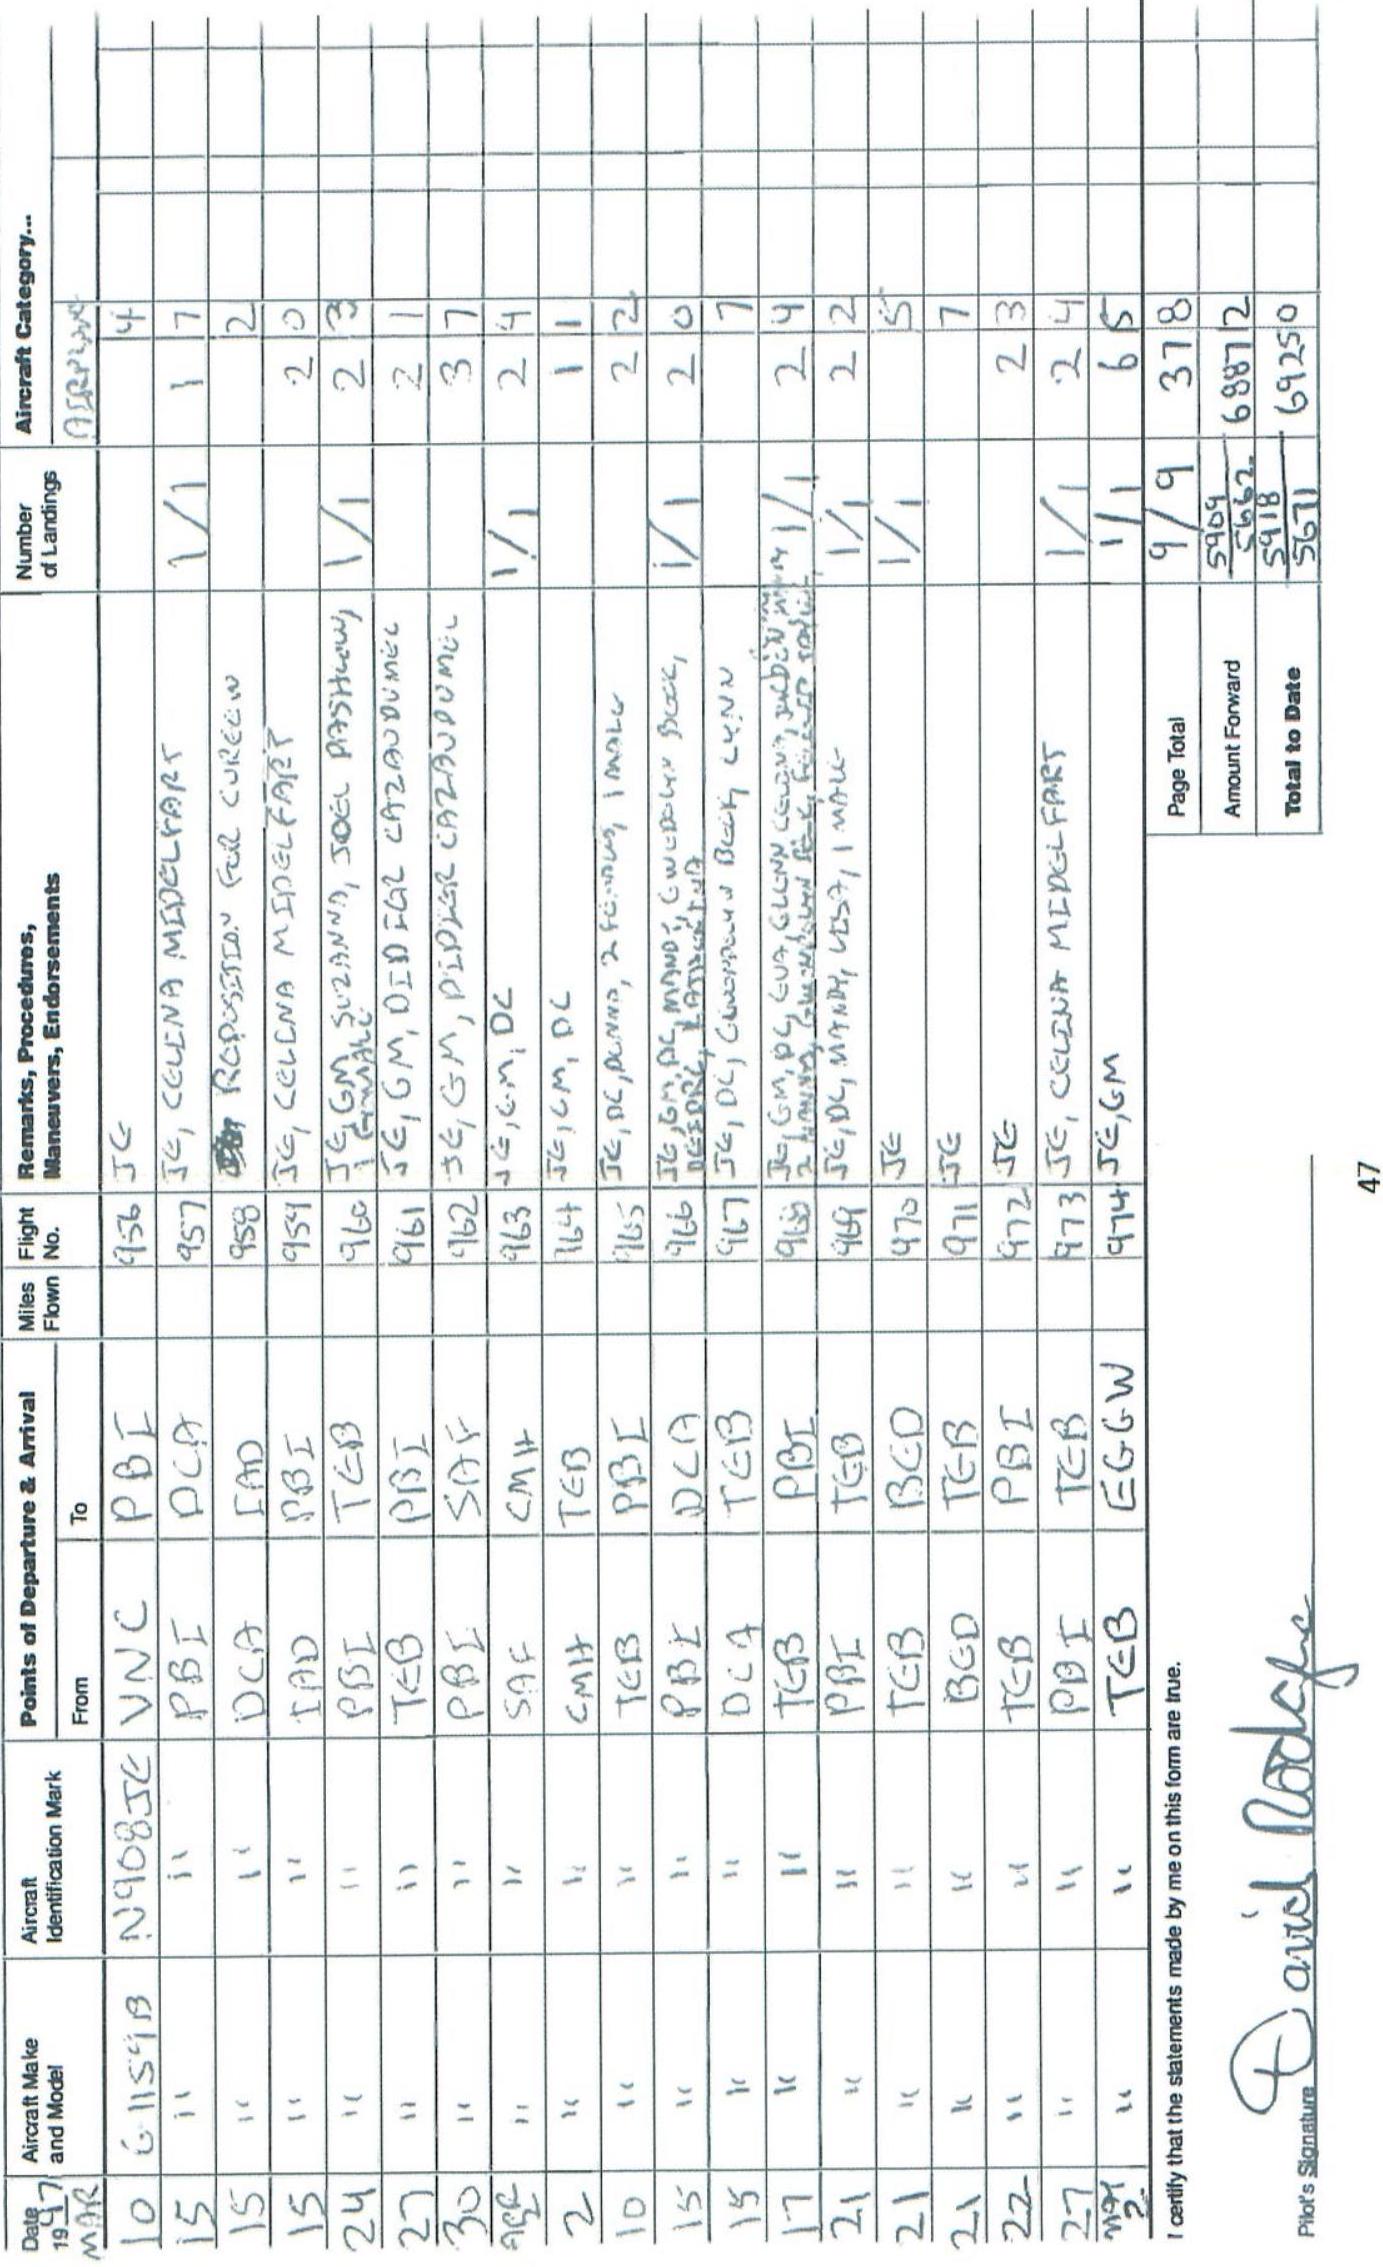 Date 19 97 Aircraft Make and Model Aircraft Identification Mark Points of Departure & Arrival Miles Flown Flight No. Remarks, Procedures, Maneuvers, Endorsements Number of Landings Aircraft Category...
MAR From To AIRPLANE
10 G-1159B N908JE VNC PBI 956 JE 4
15 " " PBI DCA 957 JE, CELINA MIDELFART 1/1 1 7
15 " " DCA IAD 958 REPOSITION FOR CURFEW 2
15 " " IAD PBI 959 JE, CELINA MIDELFART 2 0
24 " " PBI TEB 960 JE, GM, SUZANNA, JOEL PASHCOW, 1 FEMALE 1/1 2 3
27 " " TEB PBI 961 JE, GM, DIDIER CAZAUDUMEC 2 1
30 " " PBI SAF 962 JE, GM, DIDIER CAZAUDUMEC 3 7
APR " " SAF CMH 963 JE, GM, DC 1/1 2 4
2 " " CMH TEB 964 JE, GM, DC 1 1
10 " " TEB PBI 965 JE, DC, 2 FEMALES, 1 MALE 2 2
15 " " PBI DCA 966 JE, GM, DC, MANDY, GWENDOLYN BECK, 1/1 2 0
15 " " DCA TEB 967 JE, DC, GWENDOLYN BECK, LYNN 7
17 " " TEB PBI 968 JE, GM, DC, EVA GLENN CELINA 1/1 2 4
21 " " PBI TEB 969 JE, DC, MANDY, LISA, 1 MALE 1/1 2 2
21 " " TEB BED 970 JE 1/1 5
21 " " BED TEB 971 JE 7
22 " " TEB PBI 972 JE 2 3
27 " " PBI TEB 973 JE, CELINA MIDELFART 1/1 2 4
MAY 2 " " TEB EGGW 974 JE, GM 1/1 6 5
I certify that the statements made by me on this form are true. Page Total 9/9 37 8
Amount Forward 5909 5662 6887 2
Total to Date 5918 5671 6925 0
Pilot's Signature David Rodgers
47